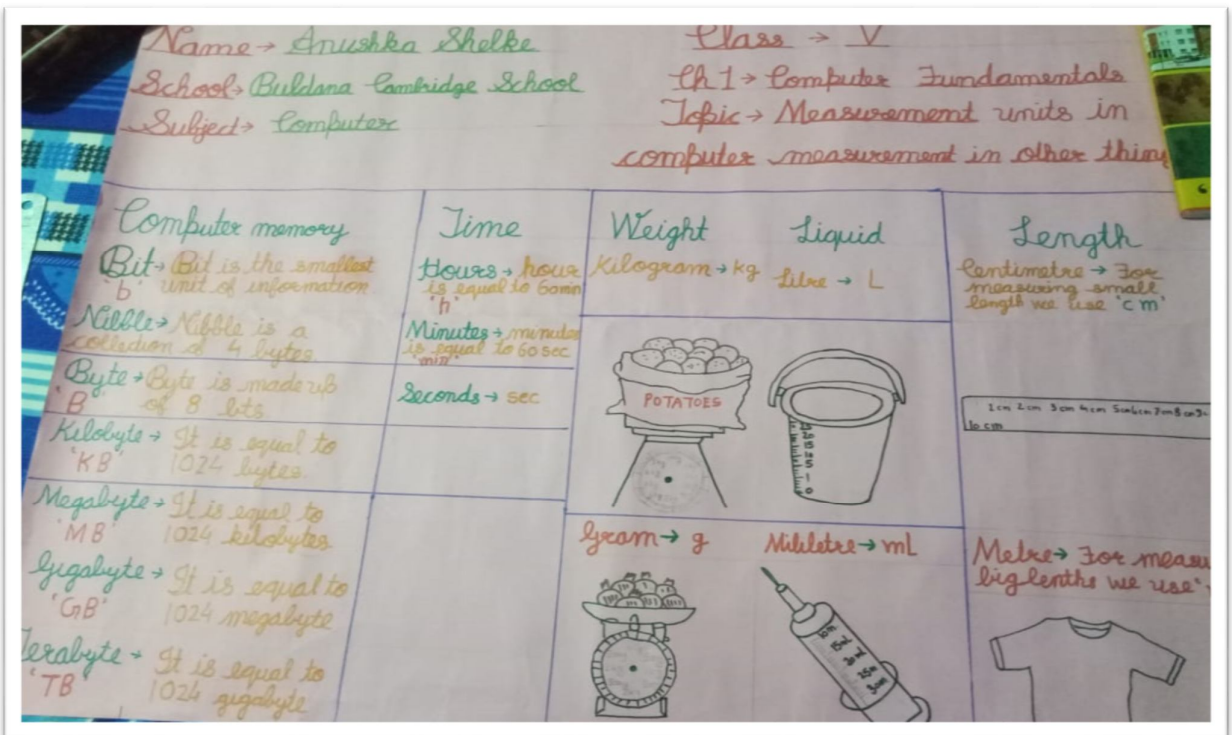 Name → Anushka Shelke
School → Buldana Cambridge School
Subject → Computer
Class → V
Ch 1 → Computer Fundamentals
Topic → Measurement units in
computer measurement in other thing
Computer memory
Bit → Bit is the smallest
'b' unit of information
Nibble → Nibble is a
collection of 4 bytes
Byte → Byte is made up
'B' of 8 bits
Kilobyte → It is equal to
'KB' 1024 bytes
Megabyte → It is equal to
'MB' 1024 kilobytes
Gigabyte → It is equal to
'GB' 1024 megabyte
Terabyte → It is equal to
'TB' 1024 gigabyte
Time
Hours → hour
is equal to 60 min
'h'
Minutes → minutes
is equal to 60 sec
'min'
Seconds → sec
Weight
Kilogram → kg
POTATOES
Gram → g
Liquid
Litre → L
Mililetre → mL
Length
Centimetre → For
measuring small
length we use 'cm'
1cm 2cm 3cm 4cm 5cm 6cm 7cm 8cm 9
10 cm
Metre → For measu
big lenths we use '
6